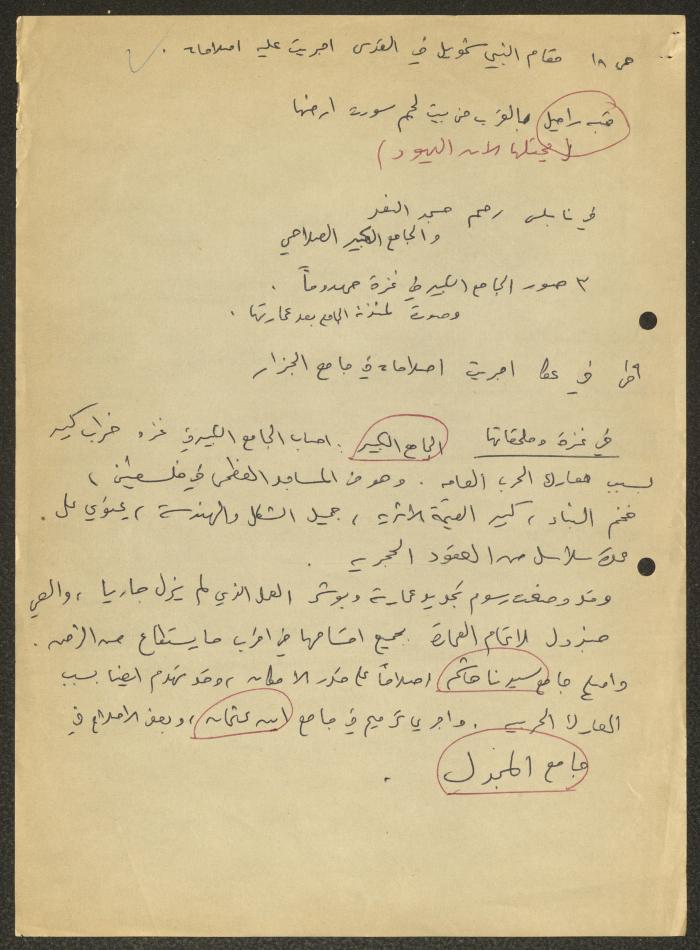 ص ١٨ مقام النبي صموئيل في القدس اجريت عليه اصلاحات .
قبة راحيل بالقرب من بيت لحم سورت ارضها
( يحتلها الآن اليهود )
في نابلس رمم مسجد النصر
والجامع الكبير الصلاحي
٣ صور الجامع الكبير في غزة مهدوماً .
وصورة لمئذنة الجامع بعد عمارتها .
في عكا اجريت اصلاحات في جامع الجزار
في غزة وملحقاتها الجامع الكبير . اصاب الجامع الكبير في غزة خراب كبير
بسبب معارك الحرب العامة . وهو من المساجد العظمى في فلسطين ،
فخم البناء ، كبير القيمة الاثرية ، جميل الشكل والهندسة ، يحتوي على
عدة سلاسل من العقود الحجرية .
وقد وضعت رسوم تجديد عمارته وبوشر العمل الذي لم يزل جاريا ، والسعي
مبذول لاتمام العمارة بجميع اقسامها في اقرب ما يستطاع من الزمن .
واصلح جامع سيدنا هاشم اصلاحاً على قدر الامكان ، وقد تهدم ايضا بسبب
المعارك الحربية . واجري ترميم في جامع ابن عثمان ، وبعض الاصلاح في
جامع المجدل .